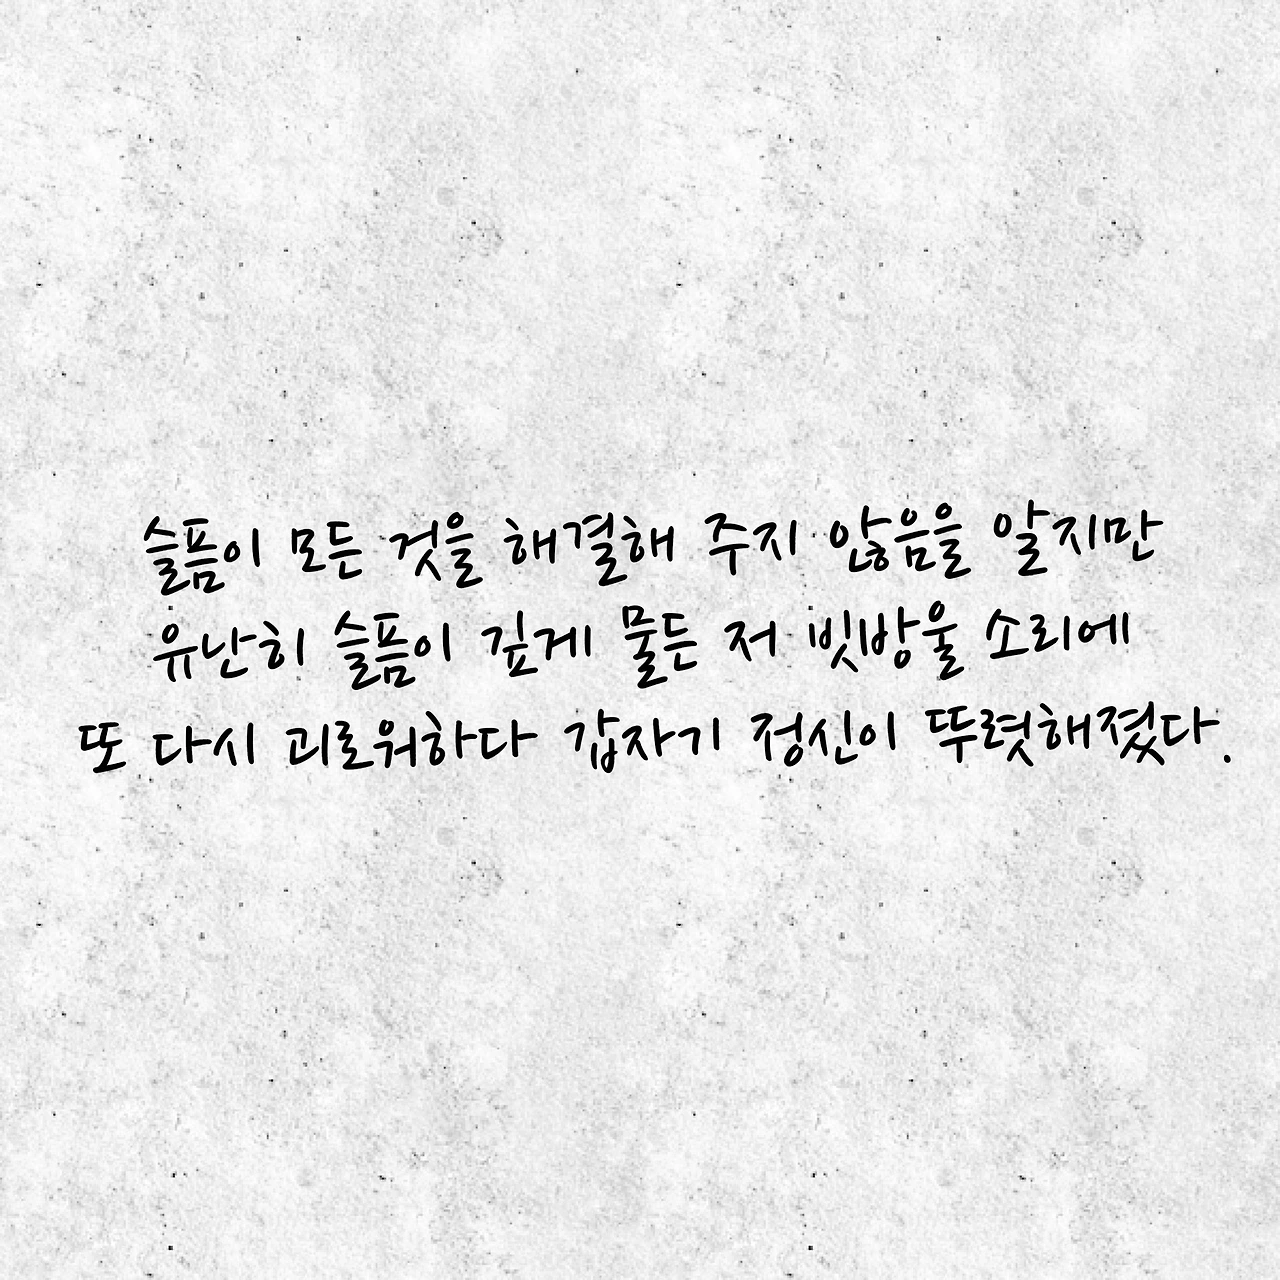 슬픔이 모든 것을 해결해 주지 않음을 알지만
유난히 슬픔이 깊게 물든 저 빗방울 소리에
또 다시 괴로워하다 갑자기 정신이 뚜렷해졌다.